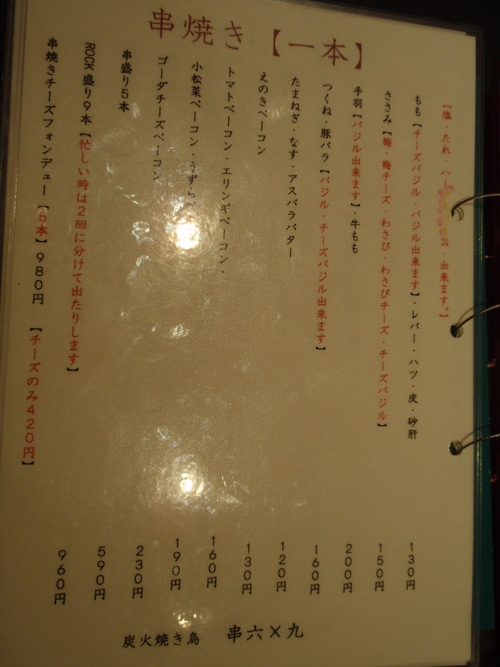 串焼き【一本】
【塩・たれ・
出来ます。】
もも【チーズバジル・バジル出来ます】・レバー・ハツ・皮・砂肝 130円
ささみ【梅・梅チーズ・わさび・わさびチーズ・チーズバジル】 150円
手羽【バジル出来ます】・牛もも 200円
つくね・豚バラ【バジル・チーズバジル出来ます】 160円
たまねぎ・なす・アスパラバター 120円
えのきベーコン 130円
トマトベーコン・エリンギベーコン・ 160円
小松菜ベーコン・うずらベ 190円
ゴーダチーズベーコン 230円
串盛り5本 590円
ROCK盛り9本【忙しい時は2回に分けて出たりします】 960円
串焼きチーズフォンデュー【5本】980円 【チーズのみ420円】
炭火焼き鳥 串六×九